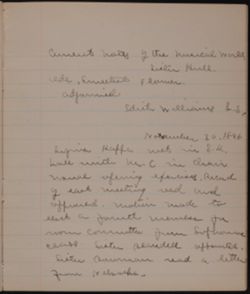 Current notes of the Musical World
Sister Hull.
Ode, Sweetest Flower.
Adjourned
Edith Williams
November 20, 18
Lyric Kappa met in S.H.
Hall with in chair
usual opening exercises. Record
of last meeting read and
approved. Motion made to
elect a fourth member for
room committee from Sophomore
class. Sister appointed.
Sister Bowman read a letter
from Nebraska.